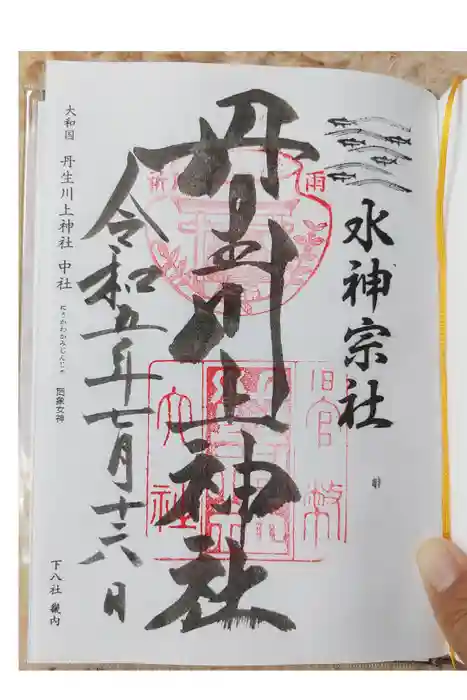 水神宗社
丹生川上神社
令和五年七月十六日
雨
所
旧官幣
大社
大和国 丹生川上神社 中社
にうかわかみじんじゃ
罔象女神
下八社 畿内